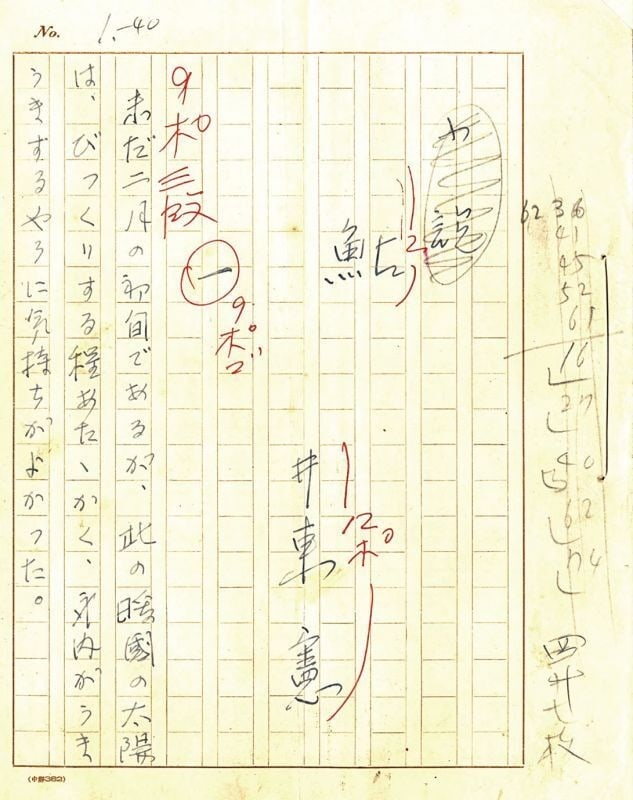 No. 1.-40
36
41
45
52
61
16
27
40
62
74
12
井東憲
12ポ
9ポ三段
一
9ポゴ
未だ二月の初旬であるが、此の暖國の太陽
は、びつくりする程あたゝかく、身内がうき
うきするやうに気持ちがよかつた。